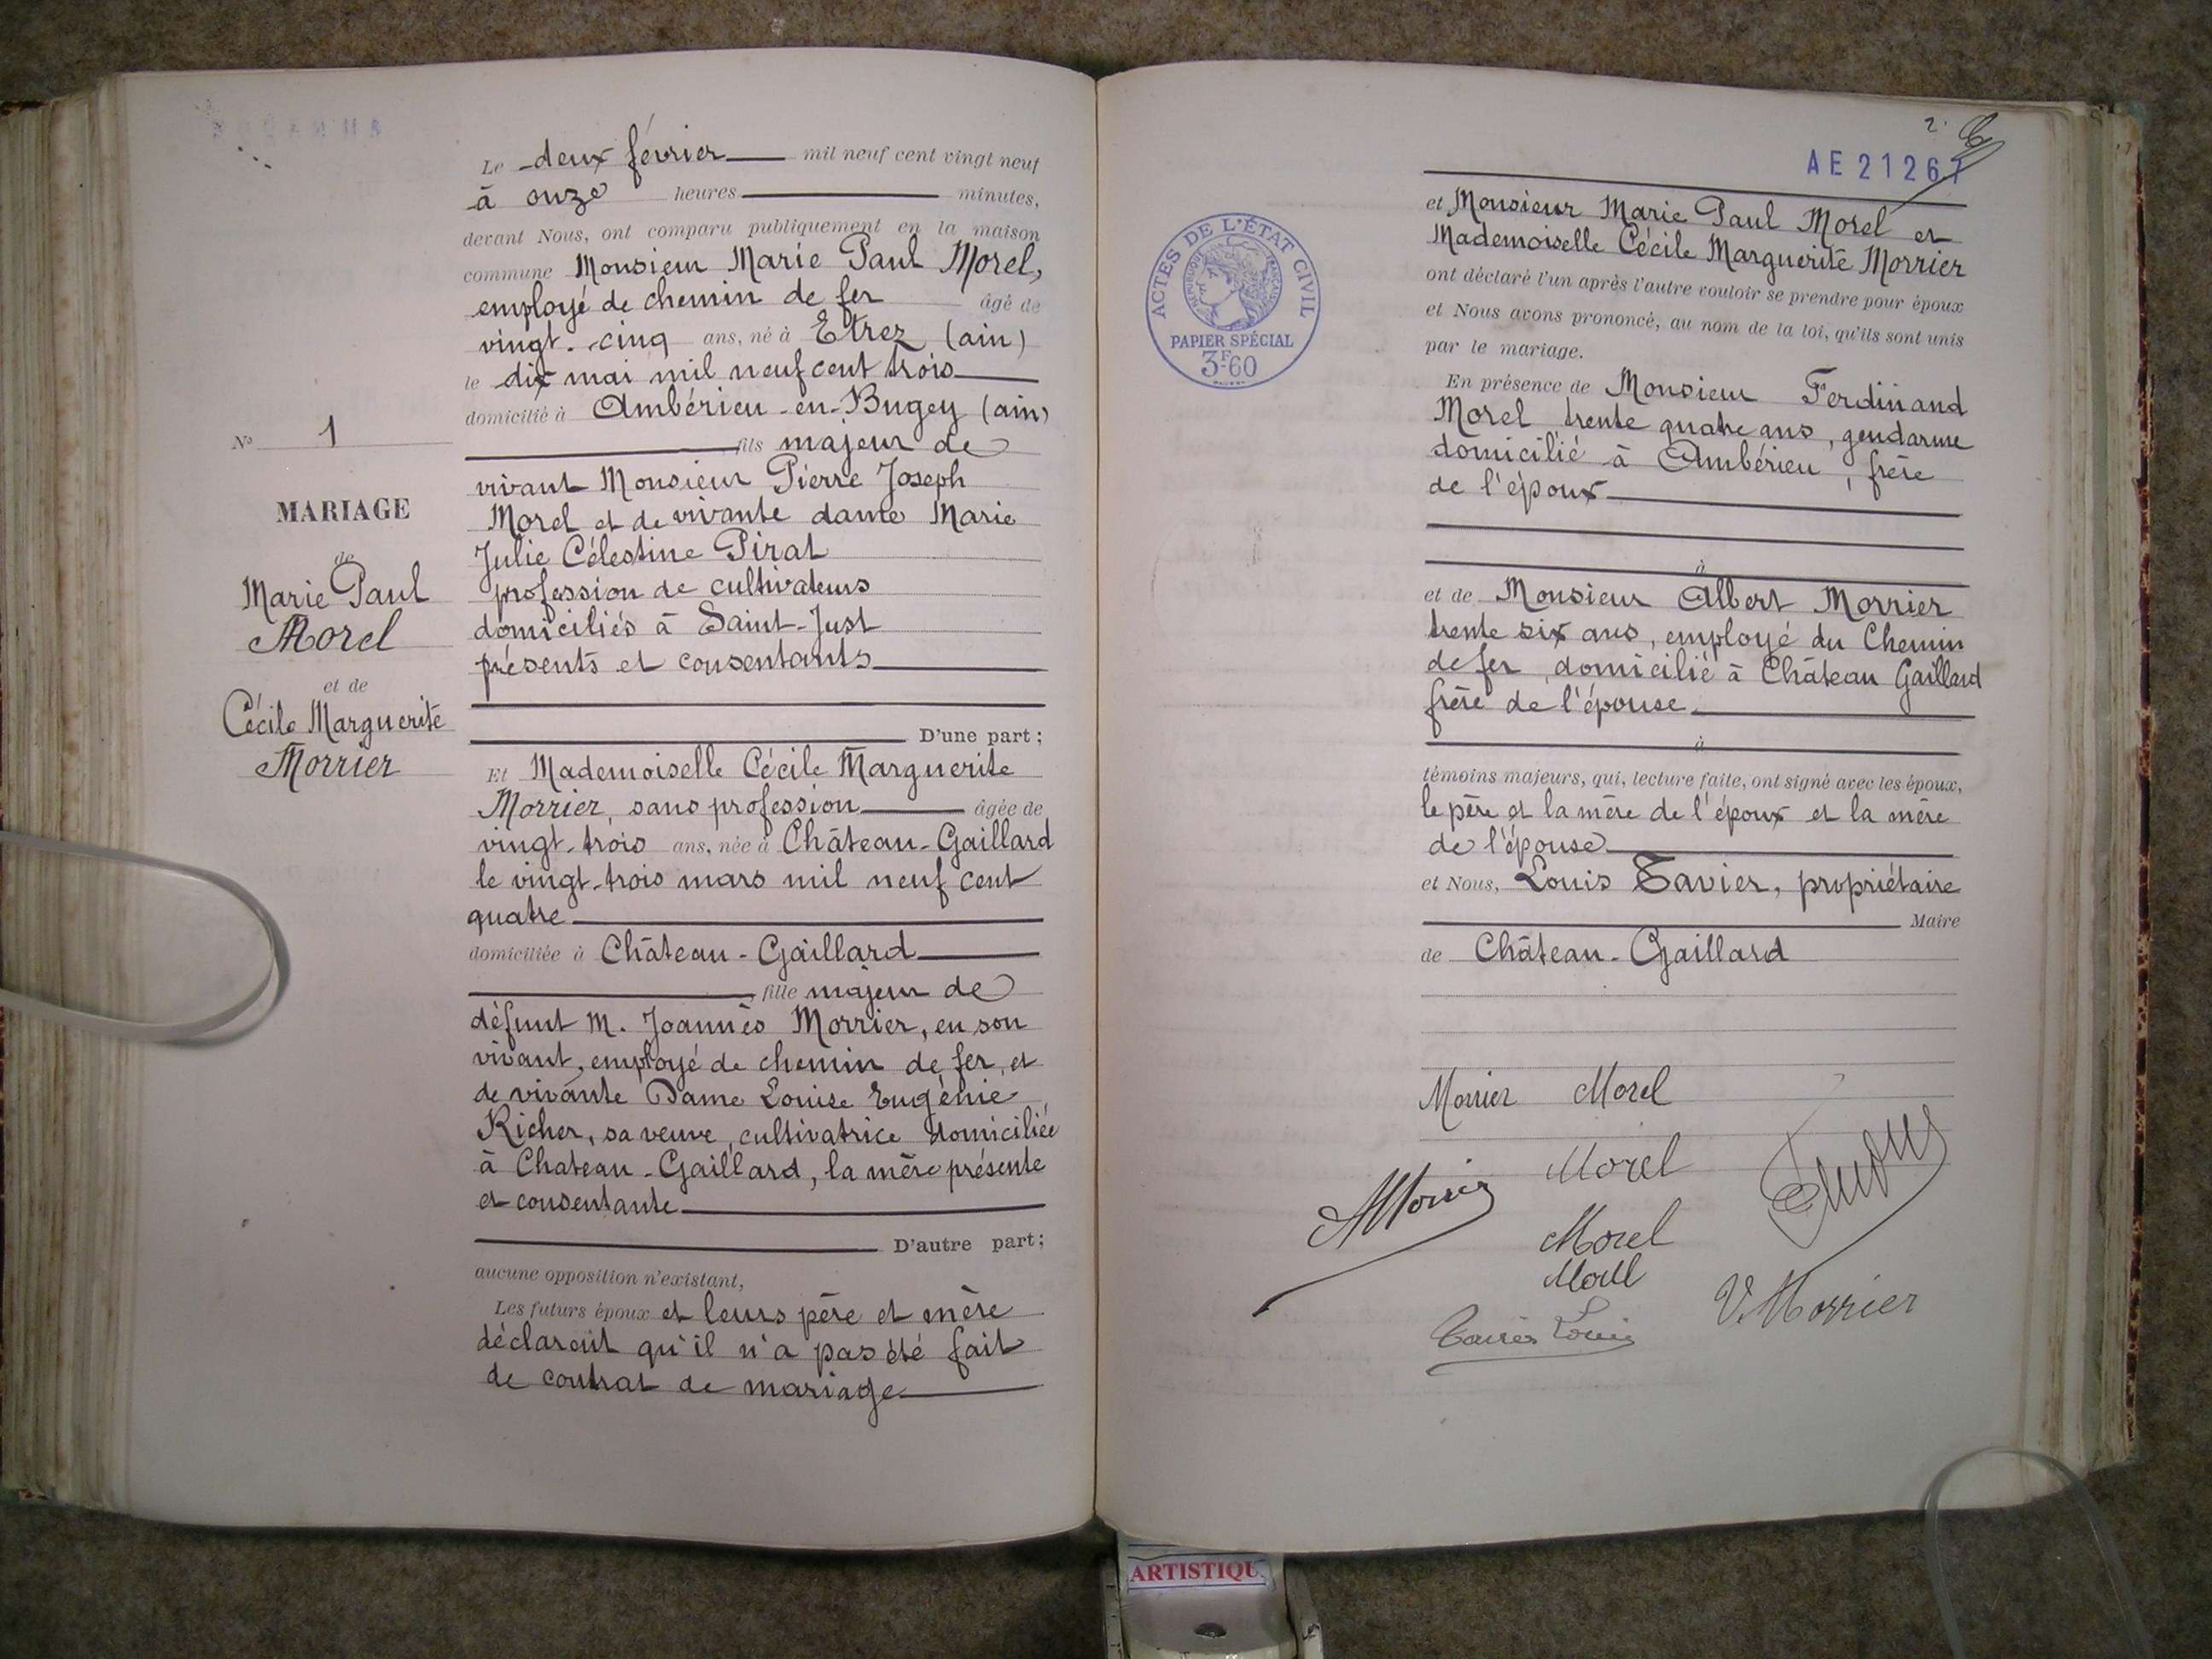 Le deux février mil neuf cent vingt neuf
à onze heures minutes,
devant Nous, ont comparu publiquement en la maison
commune Monsieur Marie Paul Morel,
employé de chemin de fer âgé de
vingt-cinq ans, né à Etrez (ain)
le dix mai mil neuf cent trois
domicilié à Ambérieu-en-Bugey (ain)
fils majeur de
vivant Monsieur Pierre Joseph
Morel et de vivante dame Marie
Julie Célestine Pirat
profession de cultivateurs
domiciliés à Saint-Just
présents et consentants
D'une part ;
Et Mademoiselle Cécile Marguerite
Morrier, sans profession âgée de
vingt-trois ans, née à Château-Gaillard
le vingt-trois mars mil neuf cent
quatre
domiciliée à Château-Gaillard
, fille majeur de
défunt M. Joannès Morrier, en son
vivant, employé de chemin de fer, et
de vivante Dame Louise Eugénie
Richer, sa veuve, cultivatrice domiciliée
à Chateau-Gaillard, la mère présente
et consentante
D'autre part ;
aucune opposition n'existant,
Les futurs époux et leurs père et mère
déclarent qu'il n'a pas été fait
de contrat de mariage
No 1
MARIAGE
de
Marie Paul
Morel
et de
Cécile Marguerite
Morrier
2.
AE 21267
ACTES DE L'ÉTAT CIVIL
RÉPUBLIQUE FRANÇAISE
PAPIER SPÉCIAL
3F60
et Monsieur Marie Paul Morel et
Mademoiselle Cécile Marguerite Morrier
ont déclaré l'un après l'autre vouloir se prendre pour époux
et Nous avons prononcé, au nom de la loi, qu'ils sont unis
par le mariage.
En présence de Monsieur Ferdinand
Morel trente quatre ans, gendarme
domicilié à Ambérieu, frère
de l'époux
à
et de Monsieur Albert Morrier
trente six ans, employé du Chemin
de fer, domicilié à Château Gaillard
frère de l'épouse.
à
témoins majeurs, qui, lecture faite, ont signé avec les époux,
le père et la mère de l'époux et la mère
de l'épouse
et Nous, Louis Tavier, propriétaire
Maire
de Château-Gaillard
Morrier Morel
Morel
AMorrier
Morel
Morel
V. Morrier
Tavier Louis
ARTISTIQU